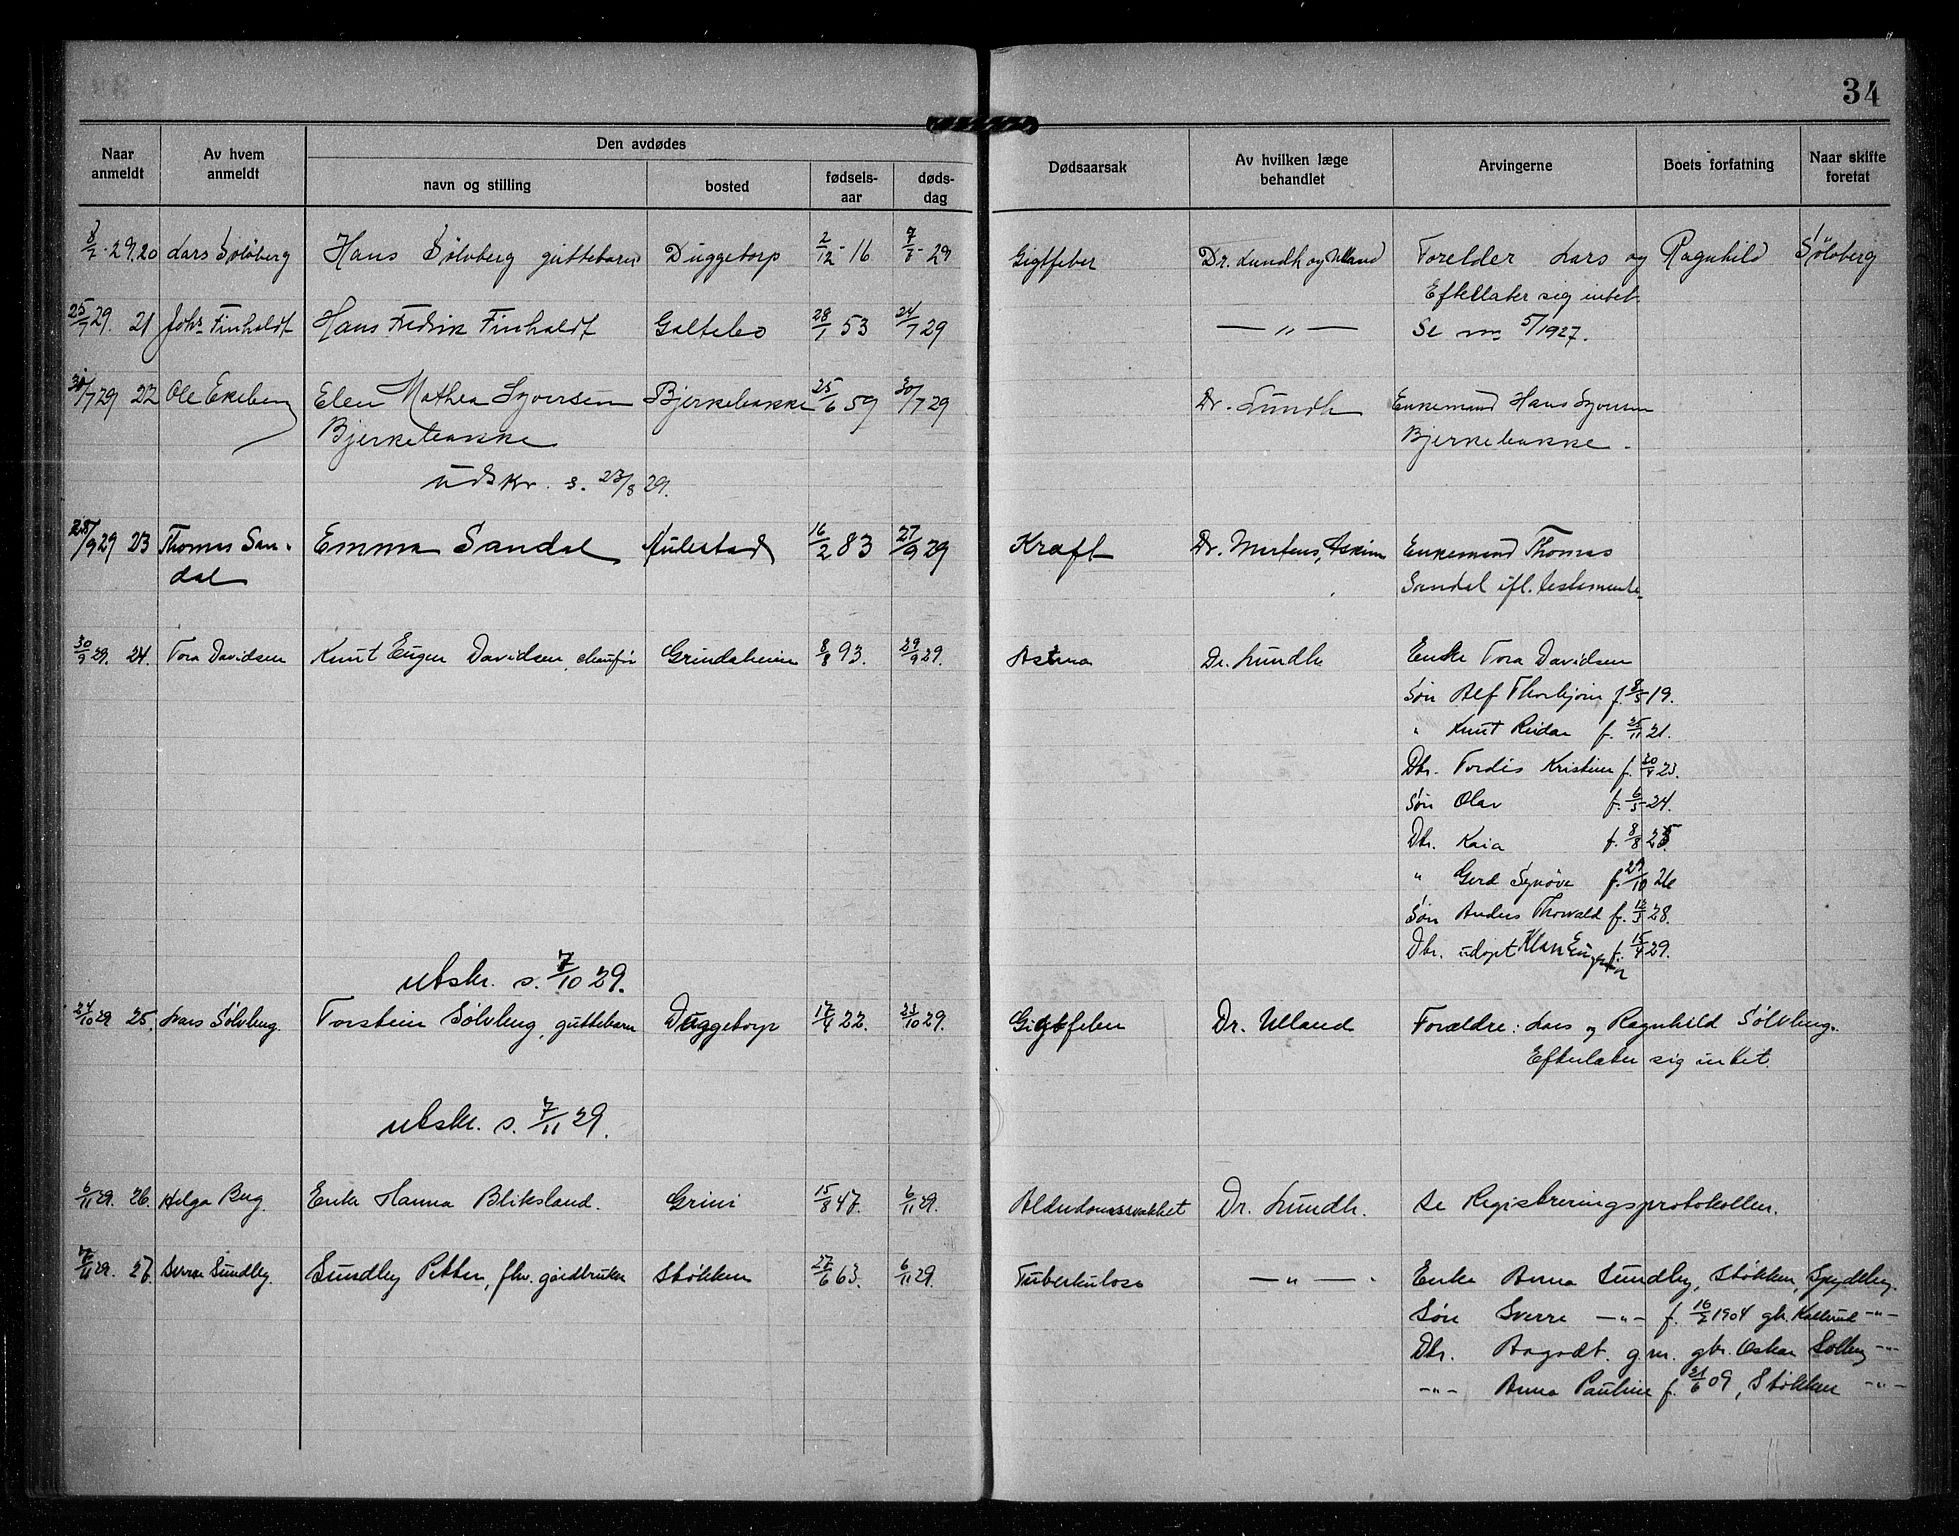 34
Naar anmeldt
Av hvem anmeldt
Den avdødes
navn og stilling
bosted
fødsels-aar
døds-dag
Dødsaarsak
Av hvilken læge behandlet
Arvingerne
Boets forfatning
Naar skifte foretat
8/7-29. 20 Lars Sølvberg Hans Sølvberg guttebarn Duggetorp 2/12-16 7/7-29 Gigtfeber Dr. Lundh og Ulland Forelder Lars og Ragnhild Sølvberg
Efterlater sig intet
25/7 29. 21 Johs Finholdt Hans Fredrik Finholdt Galtebo 28/1 53 24/7 29 —„— Se no 5/1927.
30/7 29 22 Ole Ekeberg Elen Mathea Syversen Bjerkebakke 25/6 59 30/7 29 Dr. Lundh Enkemand Hans Syversen
Bjerkebakke Bjerkebakke.
udskr. s. 23/8 29.
28/9 29 23 Thomas San- Emma Sandal Aulestad 16/2 83 27/9 29 Kræft Dr. Mertens, Askim Enkemand Thomas
dal Sandal ifl. testamente.
30/9 29. 24. Tora Davidsen Knut Eugen Davidsen, chaufør Grindsheim 8/8 93. 29/9 29. Astma Dr. Lundh Enke Tora Davidsen
Søn Alf Thorbjørn f. 8/5 19.
„ Knut Reidar f. 25/11 21.
Dtr. Tordis Kristine f. 20/4 23.
Søn Olav f. 6/5 24.
Dtr. Kaia f. 8/8 25
„ Gerd Synøve f. 29/10 26
Søn Anders Thorvald f. 12/3 28.
Dtr. udøpt Klara Eugenia f. 15/4 29.
utskr. s. 7/10 29.
24/10 29 25. Lars Sølvberg. Torstein Sølvberg, guttebarn Duggetorp 17/4 22. 23/10 29. Gigtfeber Dr. Ulland Forældre: Lars og Ragnhild Sølvberg.
Efterlater sig intet.
utskr. s. 7/11 29.
6/11 29. 26. Helga Berg. Enke Hanna Bliksland. Grini 15/8 47. 6/11 29. Alderdomssvakhet Dr. Lundh. Se Registreringsprotokollen.
7/11 29. 27. Sverre Sundby. Sundby Petter, fhv. gårdbruker Støkken 27/6 63. 6/11 29. Tuberkulose —„— Enke Anna Sundby, Støkken, Spydeberg.
Søn Sverre —„— f. 16/2 1904 gbr. —„—
Dtr. Aagodt. g.m. gbr. Oskar Solberg —„—
—„— Anna Pauline f. 21/6 09, Støkken —„—